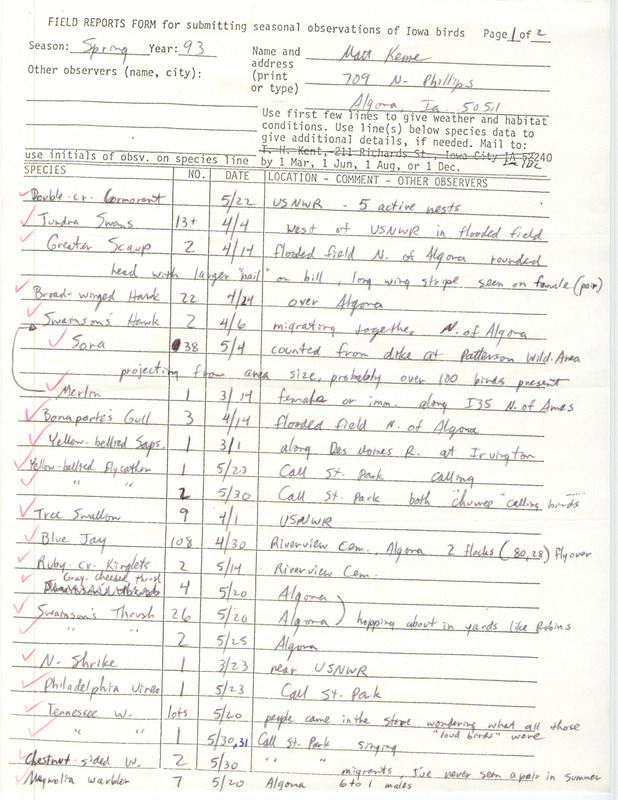 FIELD REPORTS FORM for submitting seasonal observations of Iowa birds Page 1 of 2
Season: Spring Year: 93
Name and address (print or type)
Matt Kenne
709 N. Phillips
Algona, Ia. 50511
Other observers (name, city):
Use first few lines to give weather and habitat
conditions. Use line(s) below species data to
give additional details, if needed. Mail to:
T. H. Kent, 211 Richards St., Iowa City IA 52240
by 1 Mar, 1 Jun, 1 Aug, or 1 Dec.
use initials of obsv. on species line
SPECIES NO. DATE LOCATION - COMMENT - OTHER OBSERVERS
Double-cr. Cormorant 5/22 USNWR - 5 active nests
Tundra Swans 13+ 4/4 West of USNWR in flooded field
Greater Scaup 2 4/14 flooded field N. of Algona rounded
head with larger "nail" on bill, long wing stripe seen on female (pair)
Broad-winged Hawk 22 4/24 over Algona
Swainson's Hawk 2 4/6 migrating together N. of Algona
Sora 38 5/4 counted from dike at Patterson Wild. Area
projecting from area size, probably over 100 birds present
Merlin 1 3/14 female or imm. along I35 N. of Ames
Bonaparte's Gull 3 4/14 flooded field N. of Algona
Yellow-bellied Saps. 1 3/1 along Des Moines R. at Irvington
Yellow-bellied Flycatcher 1 5/23 Call St. Park calling
" " 2 5/30 Call St. Park both "chuwee" calling birds
Tree Swallow 9 4/1 USNWR
Blue Jay 108 4/30 Riverview Cem., Algona 2 flocks (80,28) flyover
Ruby-cr. Kinglets 2 5/14 Riverview Cem.
Gray-cheeked thrush 4 5/20 Algona
Swainson's Thrush 26 5/20 Algona hopping about in yards like Robins
" " 2 5/25 Algona
N. Shrike 1 3/23 near USNWR
Philadelphia Vireo 1 5/23 Call St. Park
Tennessee W. lots 5/20 people came in the store wondering what all those
"loud birds" were
" " 1 5/30,31 Call St. Park singing
Chestnut-sided W. 2 5/30 " " migrants, I've never seen a pair in summer
Magnolia warbler 7 5/20 Algona 6 to 1 males